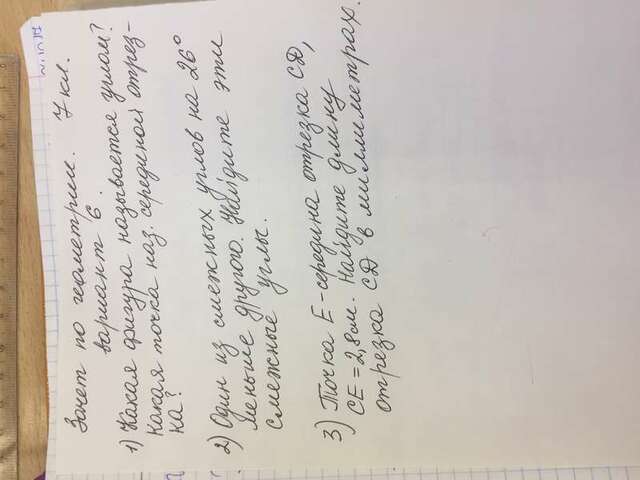 Зачет по геометрии. 7 кл.
вариант 6.
1) Какая фигура называется углом?
Какая точка наз. серединой отрез-
ка?
2) Один из смежных углов на 26°
меньше другого. Найдите эти
смежные углы.
3) Точка E - середина отрезка CD,
CE = 2,8 см. Найдите длину
отрезка CD в миллиметрах.